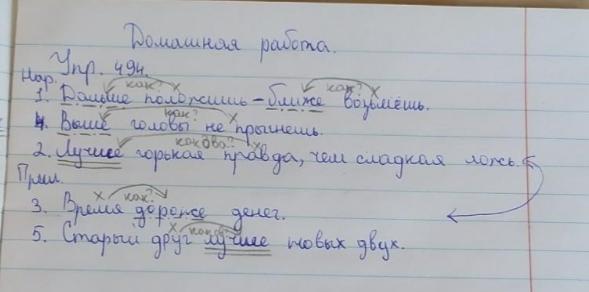 Домашная работа.
Упр. 494.
Нар.
как? как?
1. Дальше положишь – ближе возьмёшь.
как?
4. Выше головы не прыгнешь.
какова?
2. Лучше горькая правда, чем сладкая ложь.
Прил.
как?
3. Время дороже денег.
каков?
5. Старый друг лучше новых двух.